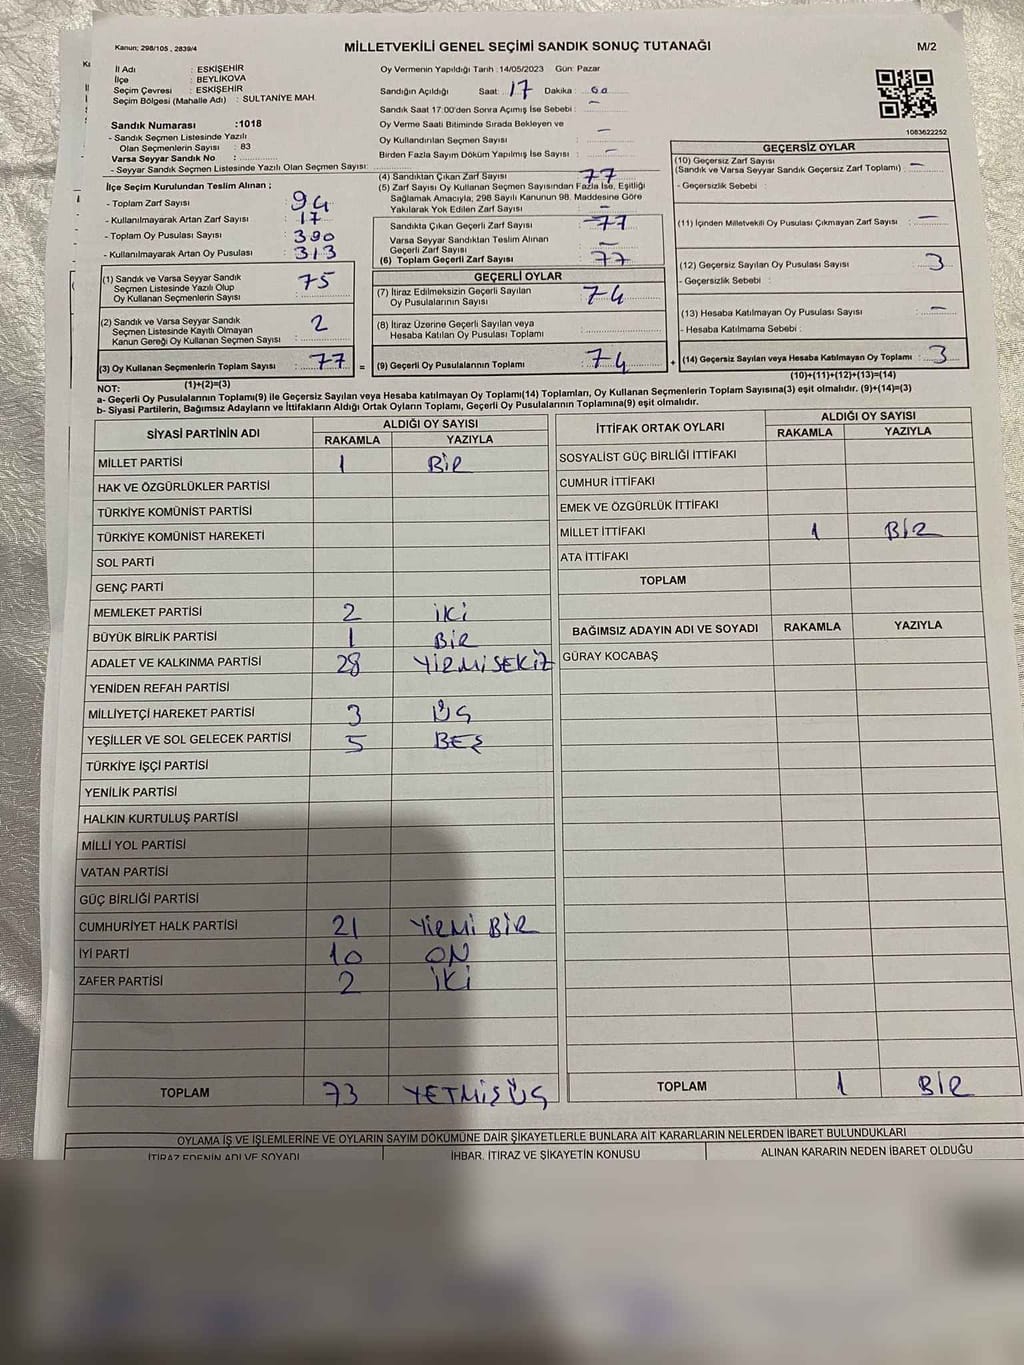 Kanun; 298/105 , 2839/4
MİLLETVEKİLİ GENEL SEÇİMİ SANDIK SONUÇ TUTANAĞI
M/2
İl Adı : ESKİŞEHİR
İlçe : BEYLİKOVA
Seçim Çevresi : ESKİŞEHİR
Seçim Bölgesi (Mahalle Adı) : SULTANİYE MAH.
Sandık Numarası :1018
- Sandık Seçmen Listesinde Yazılı
Olan Seçmenlerin Sayısı : 83
Varsa Seyyar Sandık No :
- Seyyar Sandık Seçmen Listesinde Yazılı Olan Seçmen Sayısı:
Oy Vermenin Yapıldığı Tarih :14/05/2023 Gün: Pazar
Sandığın Açıldığı Saat: 17 Dakika : 00
Sandık Saat 17:00'den Sonra Açımış İse Sebebi : –
Oy Verme Saati Bitiminde Sırada Bekleyen ve
Oy Kullandırılan Seçmen Sayısı –
Birden Fazla Sayım Döküm Yapılmış İse Sayısı : –
1083622252
İlçe Seçim Kurulundan Teslim Alınan ;
- Toplam Zarf Sayısı 94
- Kullanılmayarak Artan Zarf Sayısı : 17
- Toplam Oy Pusulası Sayısı 390
- Kullanılmayarak Artan Oy Pusulası : 313
(1) Sandık ve Varsa Seyyar Sandık
Seçmen Listesinde Yazılı Olup
Oy Kullanan Seçmenlerin Sayısı : 75
(2) Sandık ve Varsa Seyyar Sandık
Seçmen Listesinde Kayıtlı Olmayan
Kanun Gereği Oy Kullanan Seçmen Sayısı : 2
(3) Oy Kullanan Seçmenlerin Toplam Sayısı : 77
(1)+(2)=(3)
(4) Sandıktan Çıkan Zarf Sayısı : 77
(5) Zarf Sayısı Oy Kullanan Seçmen Sayısından Fazla İse, Eşitliği
Sağlamak Amacıyla; 298 Sayılı Kanunun 98. Maddesine Göre
Yakılarak Yok Edilen Zarf Sayısı : –
Sandıkta Çıkan Geçerli Zarf Sayısı : 77
Varsa Seyyar Sandıktan Teslim Alınan
Geçerli Zarf Sayısı : –
(6) Toplam Geçerli Zarf Sayısı : 77
GEÇERLİ OYLAR
(7) İtiraz Edilmeksizin Geçerli Sayılan
Oy Pusulalarının Sayısı : 74
(8) İtiraz Üzerine Geçerli Sayılan veya
Hesaba Katılan Oy Pusulası Toplamı :
= (9) Geçerli Oy Pusulalarının Toplamı : 74 +
GEÇERSİZ OYLAR
(10) Geçersiz Zarf Sayısı
(Sandık ve Varsa Seyyar Sandık Geçersiz Zarf Toplamı) : –
- Geçersizlik Sebebi :
(11) İçinden Milletvekili Oy Pusulası Çıkmayan Zarf Sayısı : –
(12) Geçersiz Sayılan Oy Pusulası Sayısı : 3
- Geçersizlik Sebebi :
(13) Hesaba Katılmayan Oy Pusulası Sayısı : –
- Hesaba Katılmama Sebebi :
(14) Geçersiz Sayılan veya Hesaba Katılmayan Oy Toplamı : 3
(10)+(11)+(12)+(13)=(14)
NOT:
a- Geçerli Oy Pusulalarının Toplamı(9) ile Geçersiz Sayılan veya Hesaba katılmayan Oy Toplamı(14) Toplamları, Oy Kullanan Seçmenlerin Toplam Sayısına(3) eşit olmalıdır. (9)+(14)=(3)
b- Siyasi Partilerin, Bağımsız Adayların ve İttifakların Aldığı Ortak Oyların Toplamı, Geçerli Oy Pusulalarının Toplamına(9) eşit olmalıdır.
SİYASİ PARTİNİN ADI ALDIĞI OY SAYISI
RAKAMLA YAZIYLA
MİLLET PARTİSİ 1 BİR
HAK VE ÖZGÜRLÜKLER PARTİSİ
TÜRKİYE KOMÜNİST PARTİSİ
TÜRKİYE KOMÜNİST HAREKETİ
SOL PARTİ
GENÇ PARTİ
MEMLEKET PARTİSİ 2 İKİ
BÜYÜK BİRLİK PARTİSİ 1 BİR
ADALET VE KALKINMA PARTİSİ 28 YİRMİSEKİZ
YENİDEN REFAH PARTİSİ
MİLLİYETÇİ HAREKET PARTİSİ 3 ÜÇ
YEŞİLLER VE SOL GELECEK PARTİSİ 5 BEŞ
TÜRKİYE İŞÇİ PARTİSİ
YENİLİK PARTİSİ
HALKIN KURTULUŞ PARTİSİ
MİLLİ YOL PARTİSİ
VATAN PARTİSİ
GÜÇ BİRLİĞİ PARTİSİ
CUMHURİYET HALK PARTİSİ 21 YİRMİ BİR
İYİ PARTİ 10 ON
ZAFER PARTİSİ 2 İKİ
TOPLAM 73 YETMİŞ ÜÇ
İTTİFAK ORTAK OYLARI ALDIĞI OY SAYISI
RAKAMLA YAZIYLA
SOSYALİST GÜÇ BİRLİĞİ İTTİFAKI
CUMHUR İTTİFAKI
EMEK VE ÖZGÜRLÜK İTTİFAKI
MİLLET İTTİFAKI 1 BİR
ATA İTTİFAKI
TOPLAM
BAĞIMSIZ ADAYIN ADI VE SOYADI RAKAMLA YAZIYLA
GÜRAY KOCABAŞ
TOPLAM 1 BİR
OYLAMA İŞ VE İŞLEMLERİNE VE OYLARIN SAYIM DÖKÜMÜNE DAİR ŞİKAYETLERLE BUNLARA AİT KARARLARIN NELERDEN İBARET BULUNDUKLARI
İTİRAZ EDENİN ADI VE SOYADI İHBAR, İTİRAZ VE ŞİKAYETİN KONUSU ALINAN KARARIN NEDEN İBARET OLDUĞU